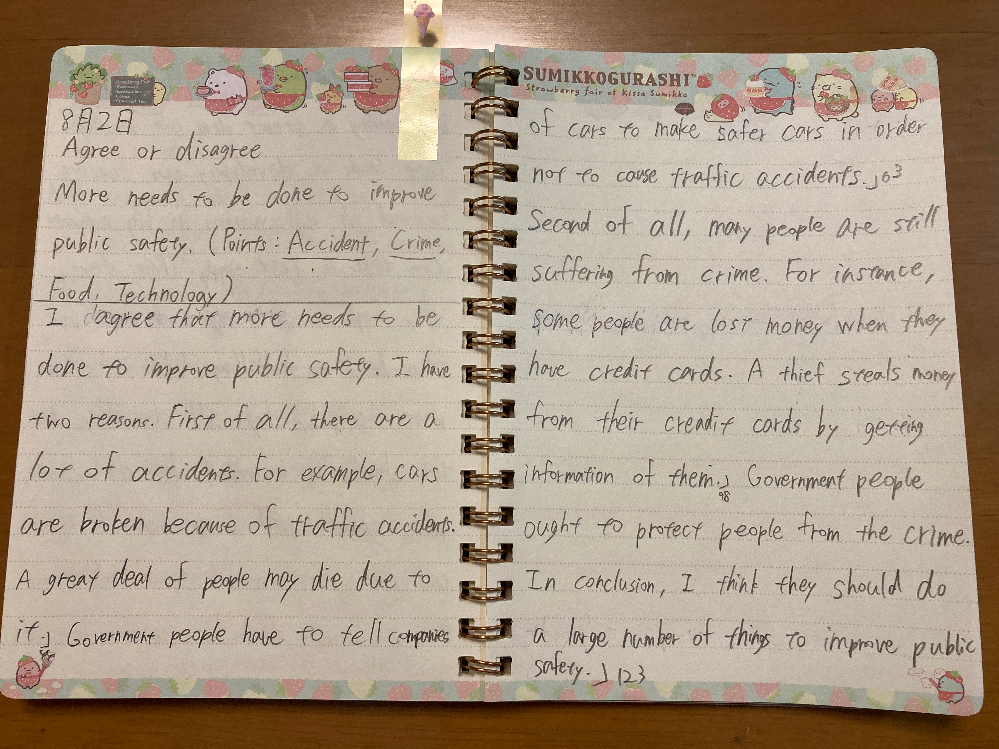 SUMIKKOGURASHI
Strawberry fair at Kissa Sumikko
8月2日
Agree or disagree
More needs to be done to improve
public safety. (Points: Accident, Crime,
Food, Technology)
I dagree that more needs to be
done to improve public safety. I have
two reasons. First of all, there are a
lot of accidents. For example, cars
are broken because of traffic accidents.
A great deal of people may die due to
it.」 Government people have to tell companies
of cars to make safer cars in order
not to cause traffic accidents.」63
Second of all, many people are still
suffering from crime. For instance,
some people are lost money when they
have credit cards. A thief steals money
from their creadit cards by getting
information of them.」 Government people
98
ought to protect people from the crime.
In conclusion, I think they should do
a large number of things to improve public
safety.」123